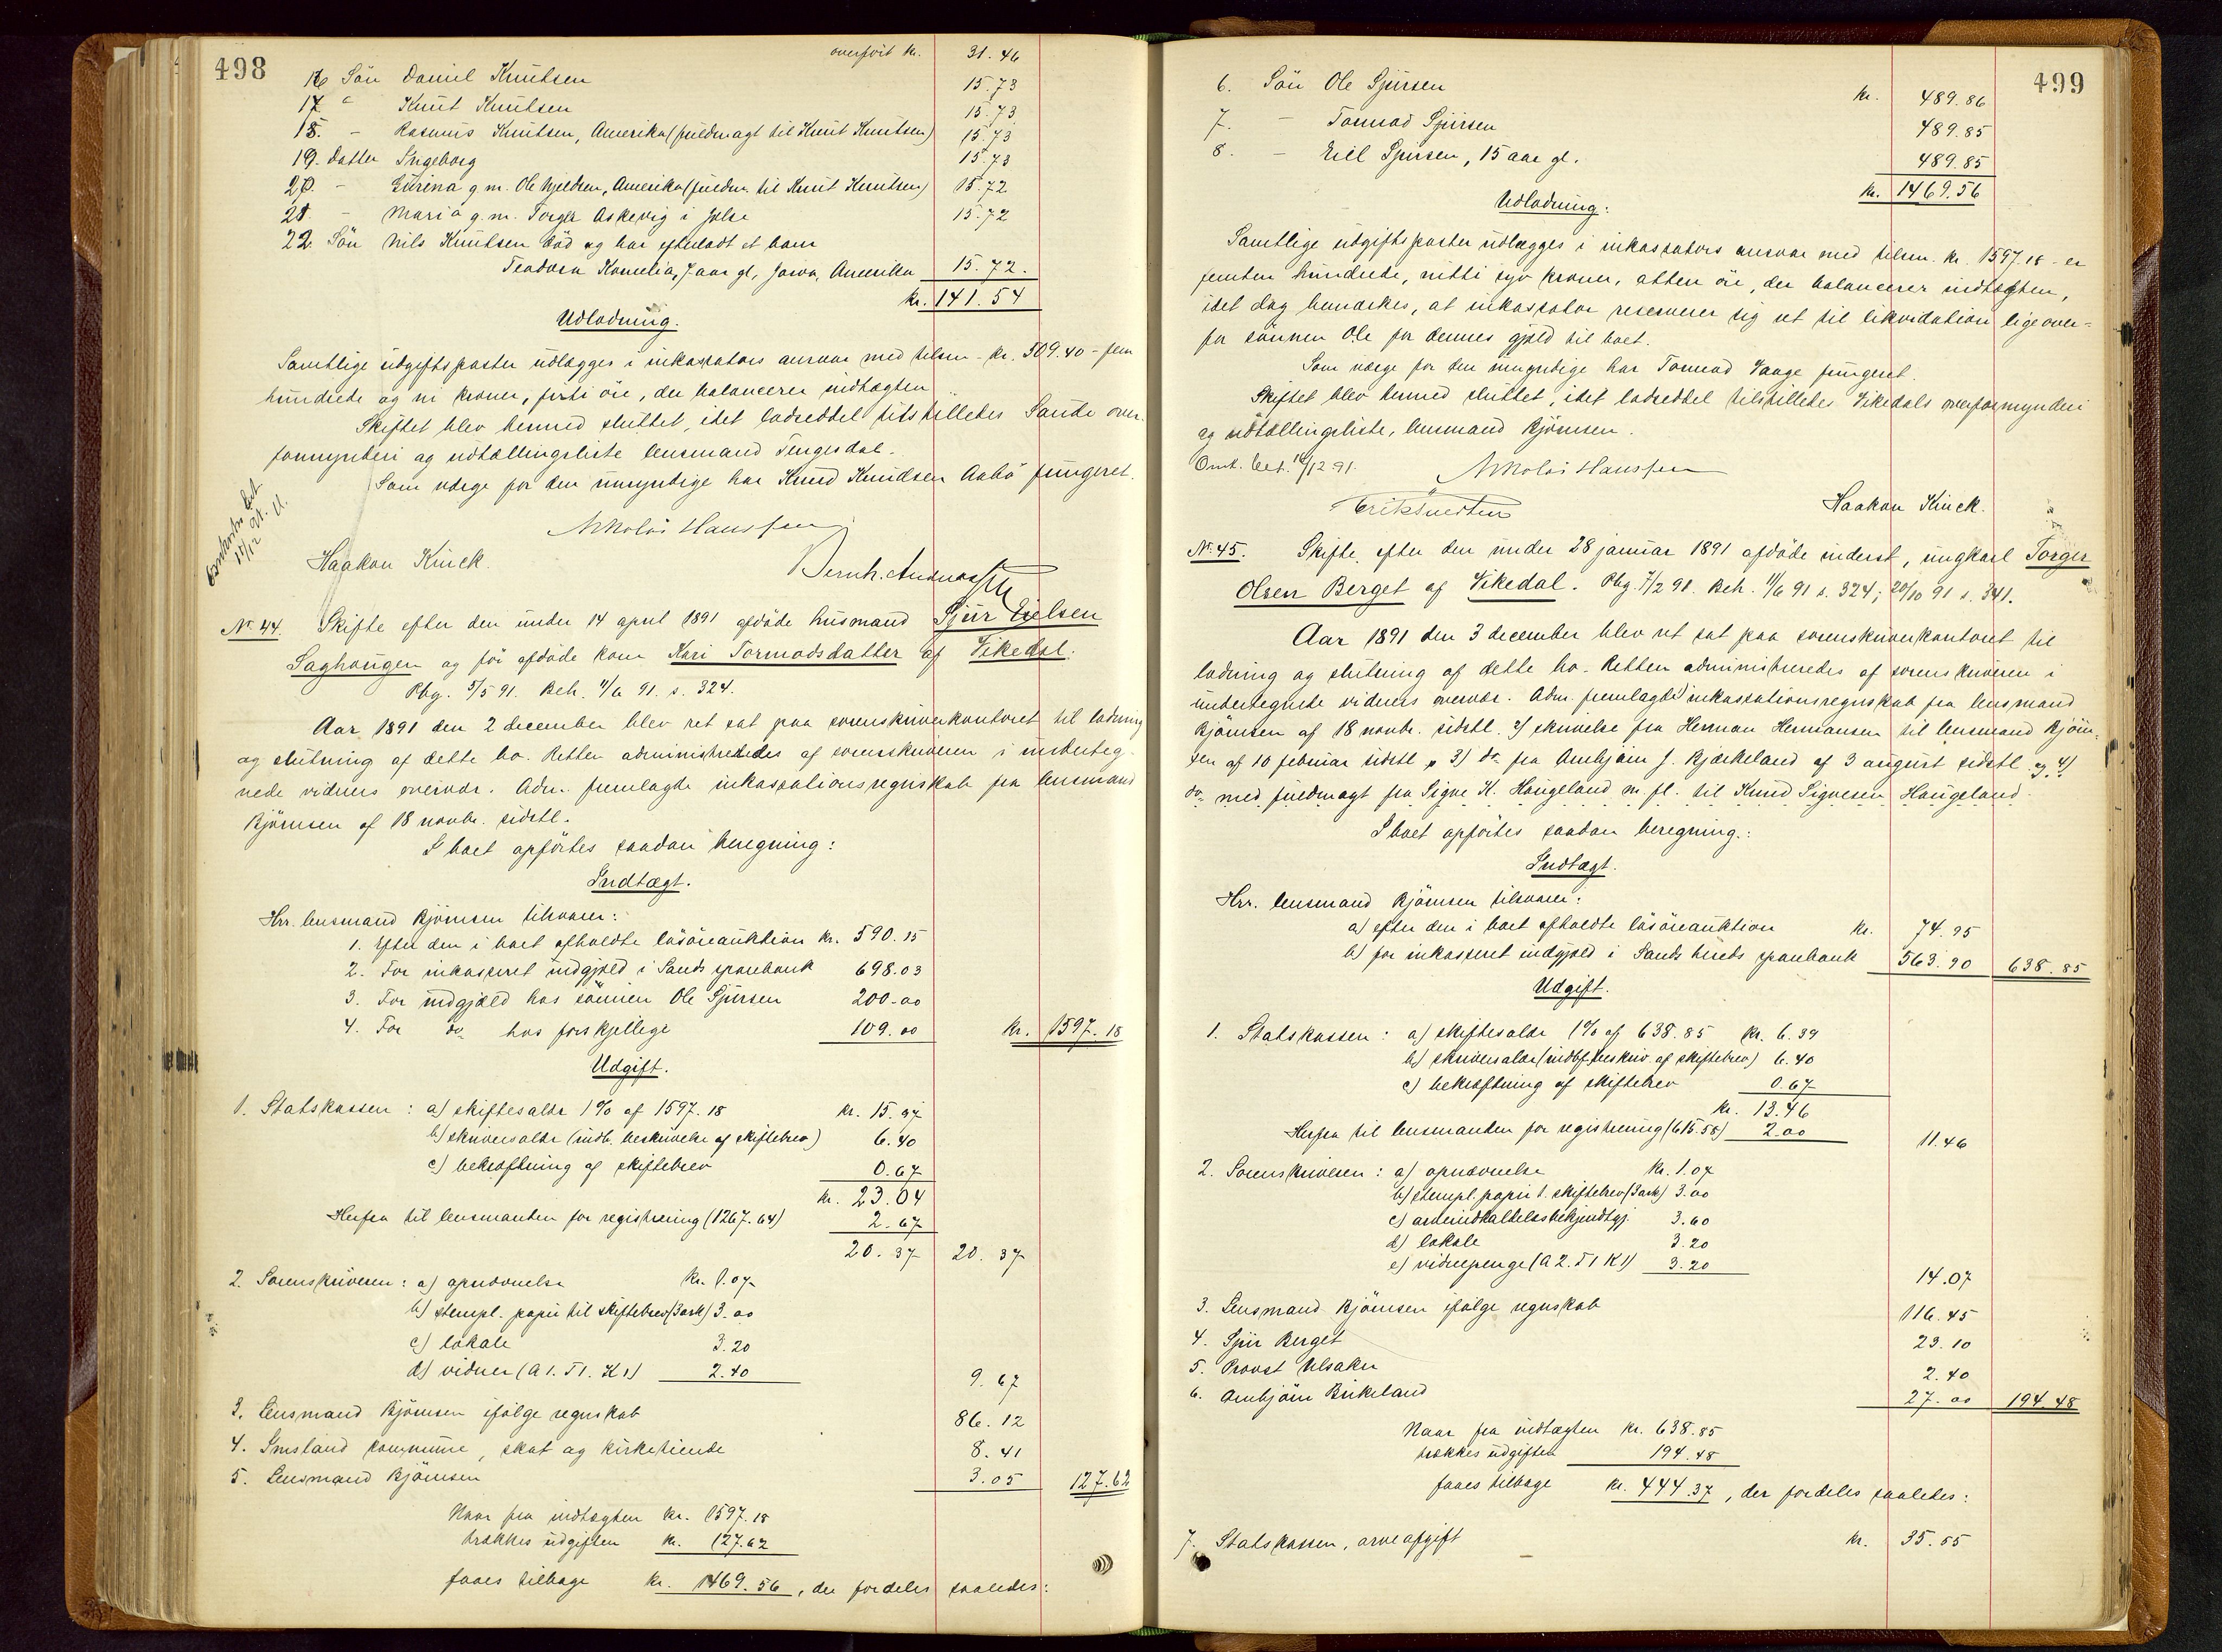 498
overført kr. 31.46
16 Søn Daniel Knutsen 15.73
17 " Knut Knutsen 15.73
18. - Rasmus Knutsen, Amerika (fuldmagt til Knut Knutsen) 15.73
19. Datter Ingeborg 15.73
20. - Gurina g.m. Ole Kjeldsen, Amerika (fuldm. til Knut Knutsen) 15.72
21. - Maria g.m. Torger Askevig i Jelse 15.72
22. Søn Nils Knutsen død og har efterladt et barn
Teodora Kornelia, 7 aar gl, Jowa, Amerika 15.72.
kr. 141.54
Udlodning.
Samtlige udgiftsposter udlægges i inkassators ansvar med tilsm. kr. 509.40 - fem
hundrede og ni kroner, firti øre, der balancerer indtægten
Skiftet blev hermed sluttet, idet lodseddel tilstilledes Saude over-
formynderi og udtællingsliste lensmand Tengesdal.
Som værge for den umyndige har Knud Knudsen Aabø fungeret.
Nikolai Hanssen
Haakon Kinck.
Bernh. Andreassen
No 44. Skifte efter den under 14 april 1891 afdøde husmand Sjur Eielsen
Saghaugen og før afdøde kone Kari Tormodsdatter af Vikedal.
Pbg. 5/5 91. Beh. 11/6 91. s. 324.
Aar 1891 den 2 december blev ret sat paa sorenskriverkontoret til lodning
og slutning af dette bo. Retten administreredes af sorenskriveren i underteg-
nede vidners overvær. Adm. fremlagde inkassationsregnskab fra lensmand
Bjørnsen af 18 novbr. sidstl.
I boet opførtes saadan beregning:
Indtægt.
Hrr. lensmand Bjørnsen tilsvarer:
1. Efter den i boet afholdte løsøreauktion kr. 590.15
2. For inkasseret indgjæld i Sands sparebank 698.03
3. For indgjæld hos sønnen Ole Sjursen 200.00
4. For do hos forskjellige 109.00 kr. 1597.18
Udgift.
1. Statskassen: a) skiftesalær 1% af 1597.18 kr. 15.97
b) skriversalær (indb. beskrivelse af skiftebrev) 6.40
c) bekræftning af skiftebrev 0.67
kr. 23.04
Herfra til lensmanden for registrering (1267.64) 2.67
20.37 20.37
2. Sorenskriveren: a) opnævnelse kr. 1.07
b) stempl. papir til skiftebrev (3 ark) 3.00
c) lokale 3.20
d) vidner (A 1. T 1. K 1) 2.40 9.67
3. Lensmand Bjørnsen ifølge regnskab 86.12
4. Imsland kommune, skat og kirketiende 8.41
5. Lensmand Bjørnsen 3.05 127.62
Naar fra indtægten kr. 1597.18
trækkes udgiften kr. 127.62
faaes tilbage kr. 1469.56, der fordeles saaledes:
499
6. Søn Ole Sjursen kr. 489.86
7. - Tormod Sjursen 489.85
8. - Eiel Sjursen, 15 aar gl. 489.85
kr. 1469.56
Udlodning:
Samtlige udgiftsposter udlægges i inkassators ansvar med tilsm. kr. 1597.18 - er
femten hundrede, nitti syv kroner, atten øre, der balancerer indtægten,
idet dog bemærkes, at inkassator reserverer sig ret til likvidation ligeover-
for sønnen Ole for dennes gjæld til boet.
Som værge for den umyndige har Tormod Vaage fungeret.
Skiftet blev hermed sluttet, idet lodseddel tilstilledes Vikedals overformynderi
og udtællingsliste, lensmand Bjørnsen.
Omk. bet. 16/12 91.
Nikolai Hanssen
Haakon Kinck.
No 45. Skifte efter den under 28 januar 1891 afdøde inderst, ungkarl Torger
Olsen Berget af Vikedal. Pbg. 7/2 91. Beh. 11/6 91 s. 324; 20/10 91 s. 341.
Aar 1891 den 3 december blev ret sat paa sorenskriverkontoret til
lodning og slutning af dette bo. Retten administreredes af sorenskriveren i
undertegnede vidners overvær. Adm. fremlagde inkassationsregnskab fra lensmand
Bjørnsen af 18 novbr. sidstl. 2) skrivelse fra Herman Hermansen til lensmand Bjørn-
sen af 10 februar sidstl 3) do fra Arnbjørn J. Bjerkeland af 3 august sidstl. og 4)
do med fuldmagt fra Signe K. Haugeland m. fl. til Knud Sigvesen Haugeland.
I boet opførtes saadan beregning:
Indtægt.
Hrr. lensmand Bjørnsen tilsvarer:
a) efter den i boet afholdte løsøreauktion kr. 74.95
b) for inkasseret indgjæld i Sands herreds sparebank 563.90 638.85
Udgift.
1. Statskassen: a) skiftesalær 1% af 638.85 kr. 6.39
b) skriversalær (indbf. beskriv. af skiftebrev) 6.40
c) bekræftning af skiftebrev 0.67
kr. 13.46
Herfra til lensmanden for registrering (615.58) 2.00 11.46
2. Sorenskriveren: a) opnævnelse kr. 1.07
b) stempl. papir t. skiftebrev (3 ark) 3.00
c) arveindkaldelsesbekjendtgj. 3.60
d) lokale 3.20
e) vidnepenge (A 2. T 1 K 1) 3.20 14.07
3. Lensmand Bjørnsen ifølge regnskab 116.45
4. Sjur Berget 23.10
5. Provst Ulsaker 2.40
6. Arnbjørn Birkeland 27.00 194.48
Naar fra indtægten kr. 638.85
trækkes udgiften 194.48
faaes tilbage kr. 444.37, der fordeles saaledes:
7. Statskassen, arveafgift kr. 35.55